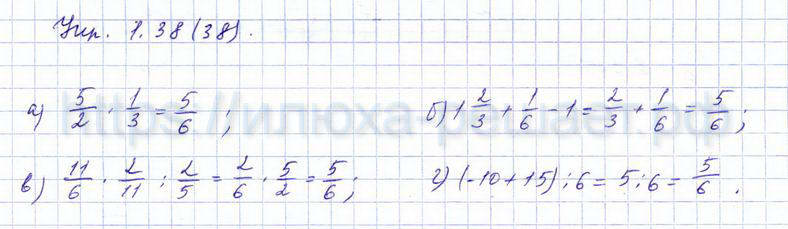 Упр. 1.38 (38).
а) 5/2 · 1/3 = 5/6 ; б) 1 2/3 + 1/6 - 1 = 2/3 + 1/6 = 5/6 ;
в) 11/6 · 2/11 : 2/5 = 2/6 · 5/2 = 5/6 ; г) (-10 + 15) : 6 = 5 : 6 = 5/6 .
https://илюха-решает.рф